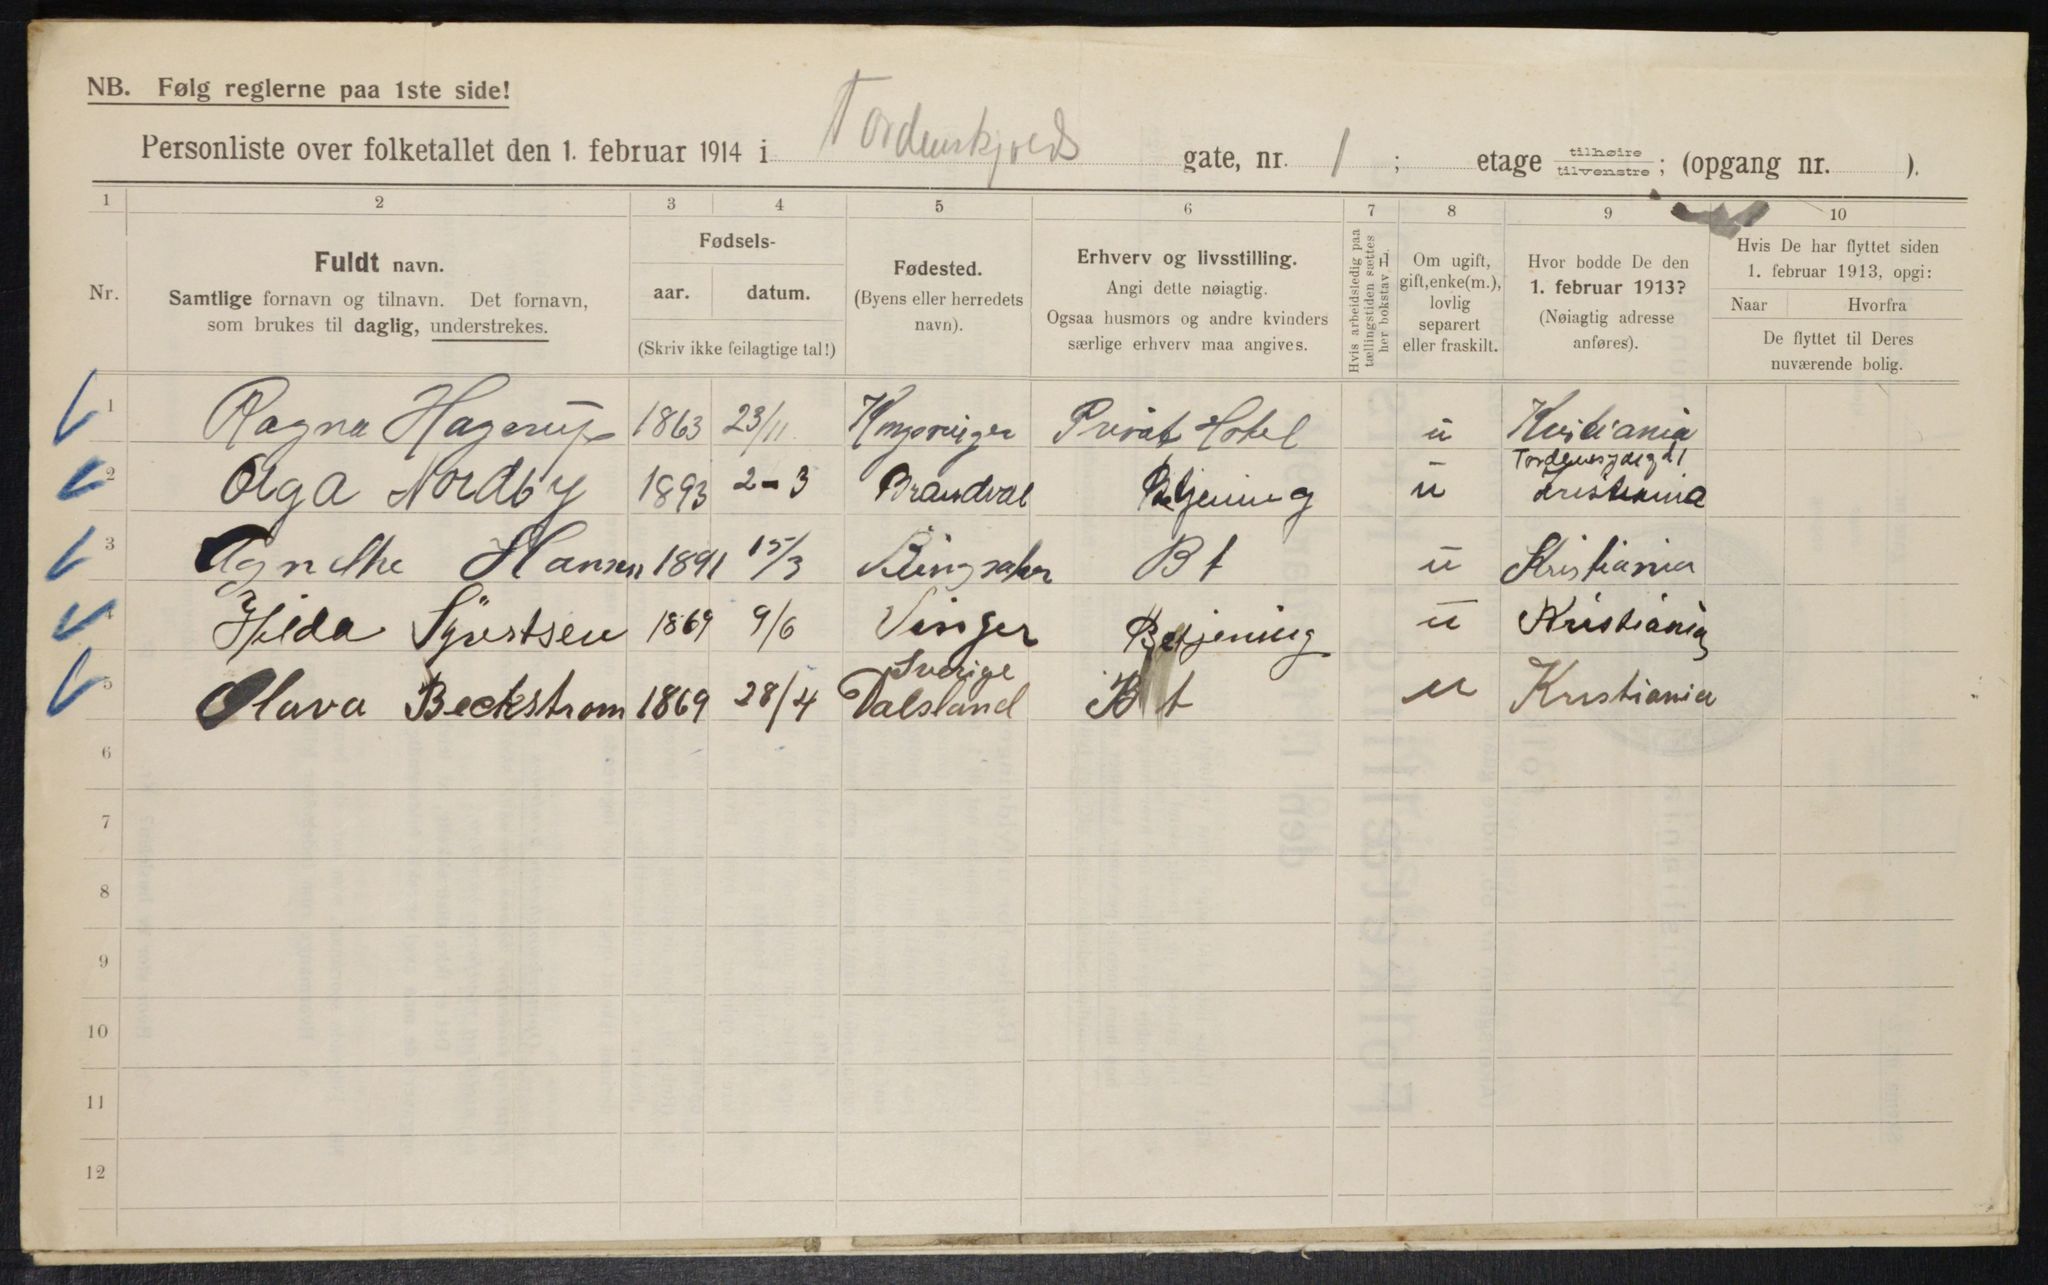 NB. Følg reglerne paa 1ste side!
Personliste over folketallet den 1. februar 1914 i Tordenskjolds gate, nr. 1; etage tilhøire tilvenstre; (opgang nr. ).
1 2 3 4 5 6 7 8 9 10
Nr.
Fuldt navn.
Samtlige fornavn og tilnavn. Det fornavn,
som brukes til daglig, understrekes.
Fødsels-
aar. datum.
(Skriv ikke feilagtige tal!)
Fødested.
(Byens eller herredets
navn).
Erhverv og livsstilling.
Angi dette nøiagtig.
Ogsaa husmors og andre kvinders
særlige erhverv maa angives.
Hvis arbeidsledig paa
tællingstiden sættes
her bokstav L
Om ugift,
gift, enke(m.),
lovlig
separert
eller fraskilt.
Hvor bodde De den
1. februar 1913?
(Nøiagtig adresse
anføres).
Hvis De har flyttet siden
1. februar 1913, opgi:
Naar Hvorfra
De flyttet til Deres
nuværende bolig.
1 Ragna Hagerup 1863 23/11 Privat Hotel u Kristiania
2 Olga Nordby 1893 2-3 Brandval Betjening u Kristiania
3 Agnethe Hansen 1891 15/3 Ringsaker Bt u Kristiania
4 Hilda 1869 9/6 Vinger Betjening u Kristiania
Sverige
5 Olava Beckstrom 1869 28/4 Dalsland Bt u Kristiania
6
7
8
9
10
11
12